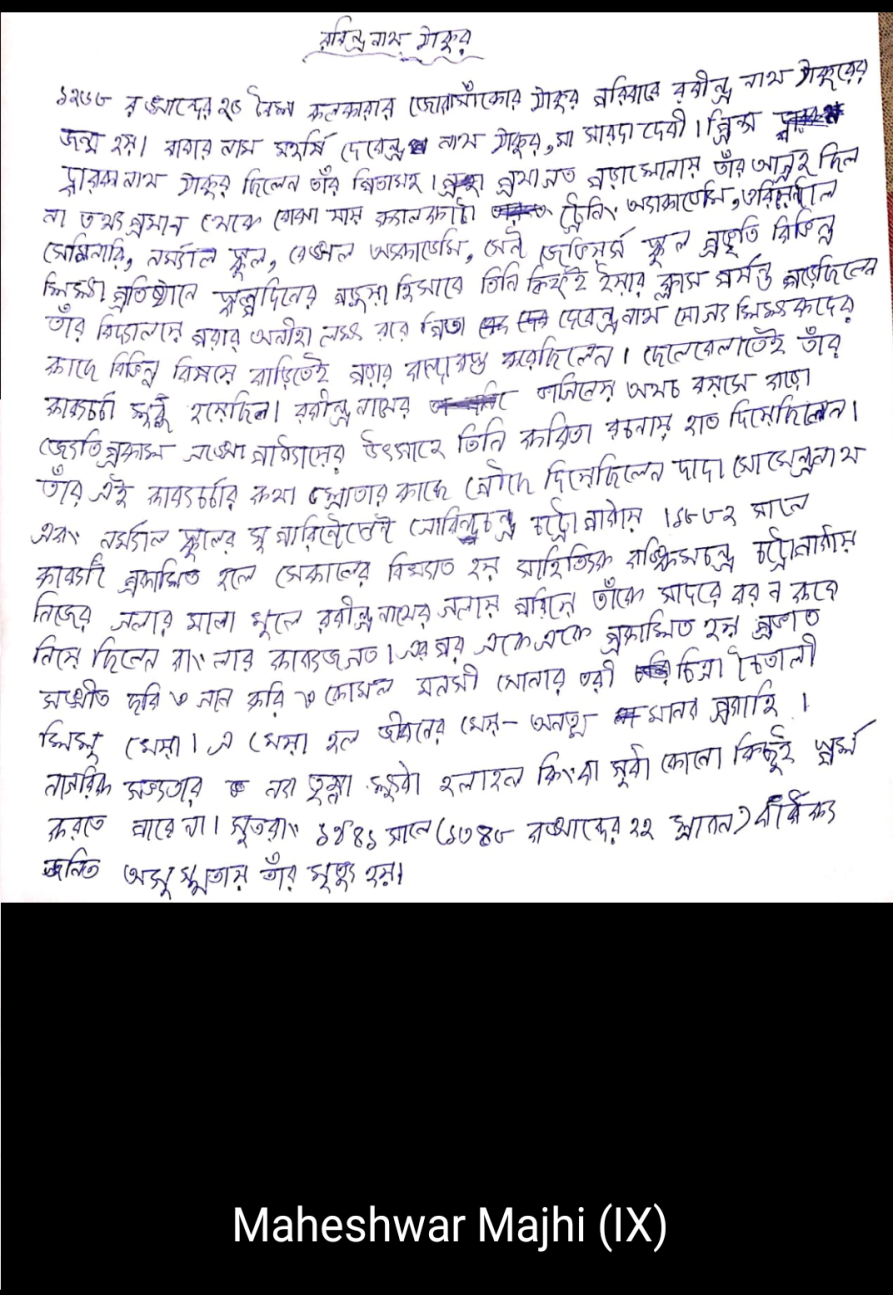 রবিন্দ্রনাথ ঠাকুর
১২৬৮ বঙ্গাব্দের ২৫ বৈশাখ কলকাতার জোরাসাঁকোর ঠাকুর পরিবারে রবীন্দ্র নাথ ঠাকুরের
জন্ম হয়। বাবার নাম মহর্ষি দেবেন্দ্র নাথ ঠাকুর, মা সারদা দেবী। প্রিন্স
দ্বারকা নাথ ঠাকুর ছিলেন তাঁর পিতামহ। প্রথাগত পড়াসোনায় তাঁর আগ্রহ ছিল
না তথ্য প্রমান থেকে বোঝা যায় ক্যালকাটা ট্রেনিং অ্যাকাডেমি, ওরিয়েন্টাল
সেমিনারি, নর্ম্যাল স্কুল, বেঙ্গল অ্যাকাডেমি, সেন্ট জেভিয়ার্স স্কুল প্রভৃতি বিভিন্ন
শিক্ষা প্রতিষ্ঠানে স্বল্পদিনের পড়ুয়া হিসাবে তিনি ফিফ্‌থ ইয়ার ক্লাস পর্যন্ত পড়েছিলেন
তাঁর বিদ্যালয়ে পরার অনীহা লক্ষ্য করে পিতা দেবেন্দ্রনাথ যোগ্য শিক্ষকদের
কাছে বিভিন্ন বিষয়ে বাড়িতেই পড়ার বন্দোবস্ত করেছিলেন। ছেলেবেলাতেই তাঁর
কাব্যচর্চা শুরু হয়েছিল। রবীন্দ্রনাথের ভাগিনেয় অথচ বয়সে বড়ো
জ্যোতিপ্রকাশ গঙ্গোপাধ্যায়ের উৎসাহে তিনি কবিতা রচনায় হাত দিয়েছিলেন।
তাঁর এই কাব্যচর্চার কথা শ্রোতার কাছে পৌঁছে দিয়েছিলেন দাদা সোমেন্দ্রনাথ
এবং নর্ম্যাল স্কুলের সুপারিন্টেন্ডেন্ট গোবিন্দচন্দ্র চট্টোপাধ্যায়। ১৮৮২ সালে
কাব্যটি প্রকাশিত হলে সেকালের বিখ্যাত হয় সাহিত্যিক বঙ্কিমচন্দ্র চট্টোপাধ্যায়
নিজের গলার মালা খুলে রবীন্দ্রনাথের গলায় পরিয়ে তাঁকে সাদরে বরন করে
নিয়ে ছিলেন বাংলার কাব্যজগত। এরপর একে একে প্রকাশিত হয় প্রভাত
সঙ্গীত ছবি ও গান কড়ি ও কোমল মনসী সোনার তরী চিত্রা চৈতালী
শিশু খেয়া। এ খেয়া হল জীবনের খেয়া- অনন্ত মানব প্রবাহি।
নাগরিক সভ্যতার নব তৃষ্ণা ক্ষুধা হলাহল কিংবা সুধা কোনো কিছুই স্পর্শ
করতে পারে না। সুতরাং ১৯৪১ সালে (১৩৪৮ বঙ্গাব্দের ২২ শ্রাবন) বার্ধক্য
জনিত অসুস্থতায় তাঁর মৃত্যু হয়।
Maheshwar Majhi (IX)